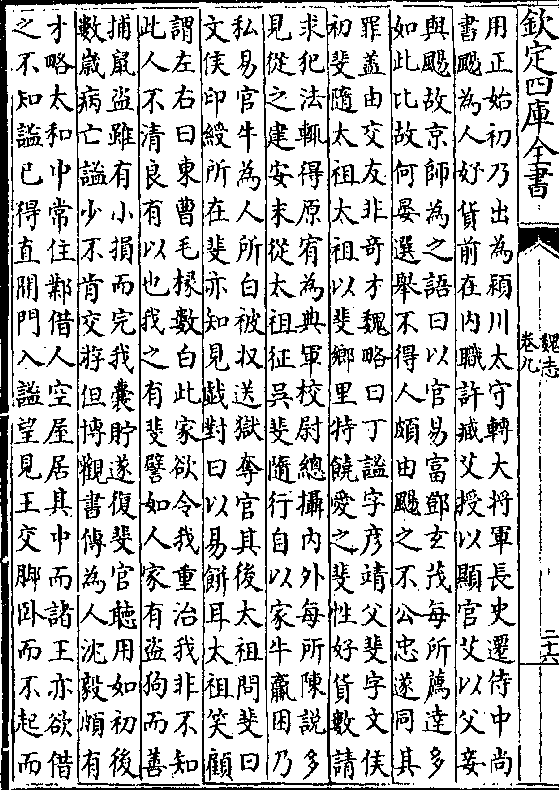 欽定四庫全書
魏志
卷九
二十六
用正始初乃出為潁川太守轉大将軍長史遷侍中尚
書颺為人好貨前在内職許臧艾授以顯官艾以父妾
與颺故京師為之語曰以官易富鄧玄茂每所薦達多
如此比故何晏選舉不得人頗由颺之不公忠遂同其
罪蓋由交友非奇才魏略曰丁謐字彦靖父斐字文侯
初斐隨太祖太祖以斐鄉里特饒愛之斐性好貨數請
求犯法輒得原宥為典軍校尉總攝内外每所陳說多
見從之建安末從太祖征吳斐隨行自以家牛羸困乃
私易官牛為人所白被收送獄奪官其後太祖問斐曰
文侯印綬所在斐亦知見戲對曰以易餅耳太祖笑顧
謂左右曰東曹毛掾數白此家欲令我重治我非不知
此人不清良有以也我之有斐譬如人家有盜狗而善
捕鼠盜雖有小損而完我囊貯遂復斐官聽用如初後
數歲病亡謐少不肯交游但博觀書傳為人沈毅頗有
才略太和中常住鄴借人空屋居其中而諸王亦欲借
之不知謐已得直開門入謐望見王交脚卧而不起而